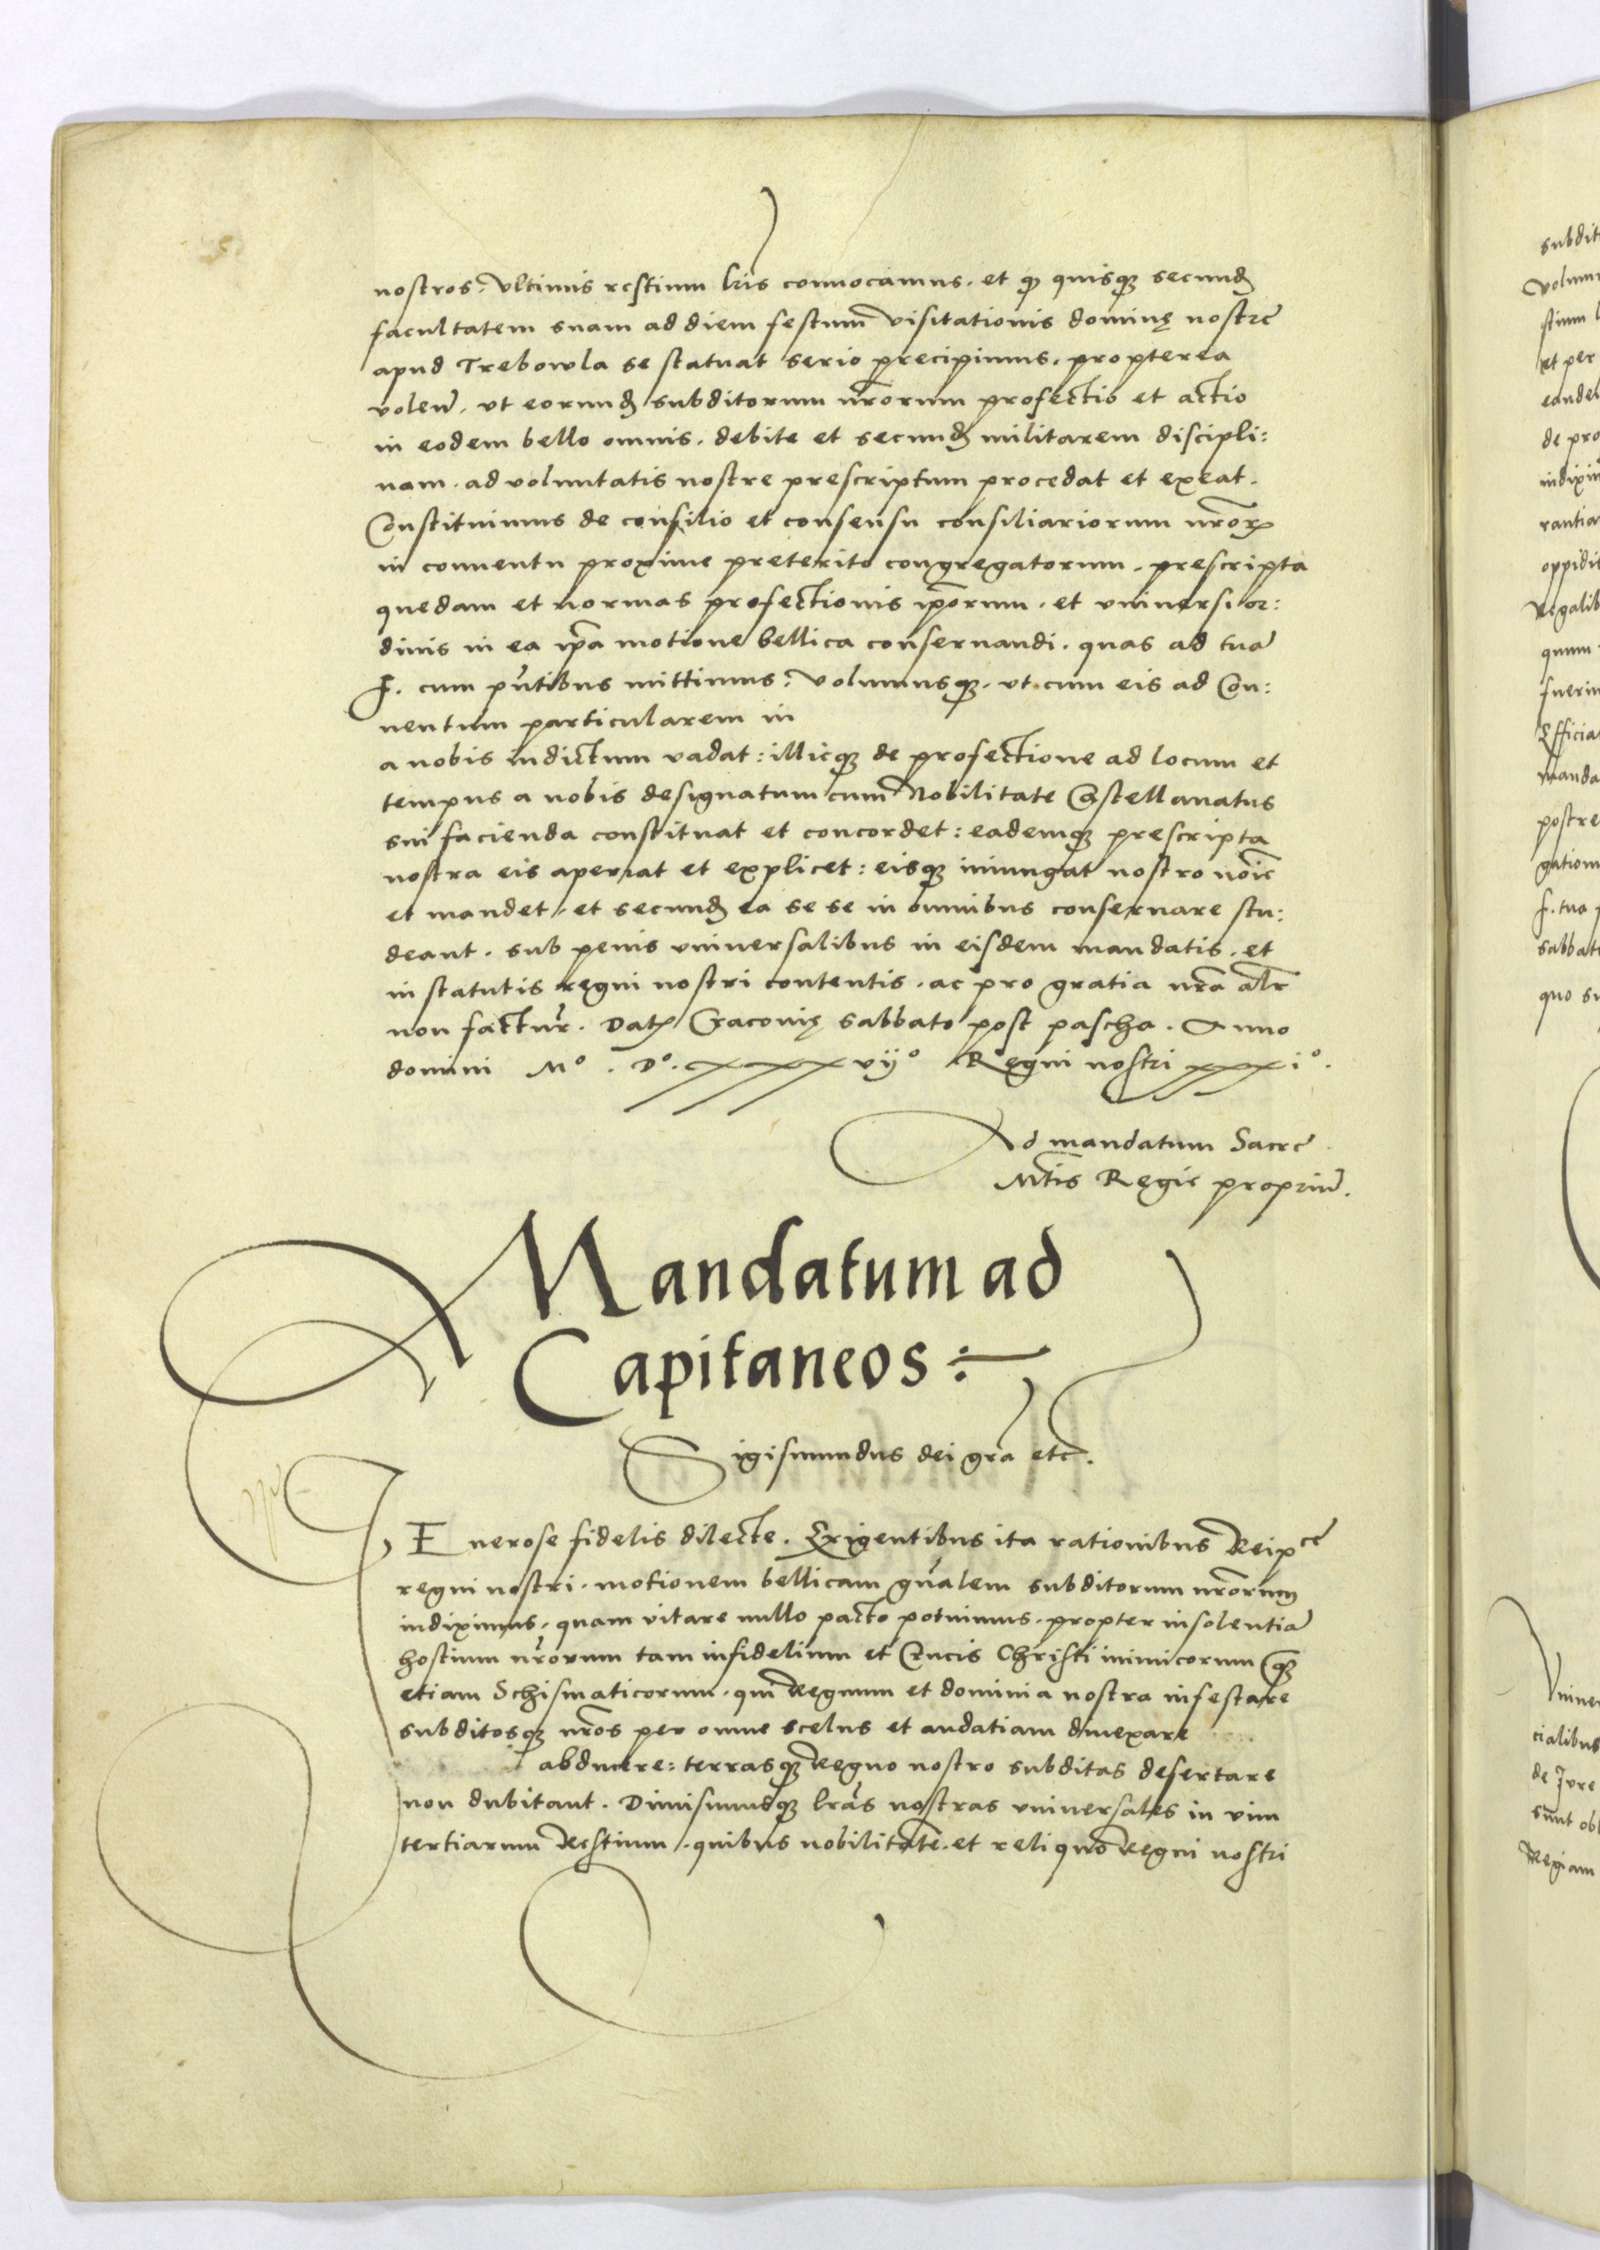 nostros. Vltimis restium lr̃is conuocamus. et q̃ quisq̃ secund̃
facultatem suam ad diem festum Visitationis dominę nostrę
apud Trebowla se statuat serio precipimus. propterea
volen̄. vt eorund̃ subditorum nr̃orum profectio et actio
in eodem bello omnis. debite et secund̃ militarem discipli:
nam. ad voluntatis nostre prescriptum procedat et exeat.
Constituimus de consilio et consensu consiliariorum nr̃or̃
in conuentu proxime preterito congregatorum. prescripta
quedam et normas profectionis ip̃orum. et vniuersi or:
dinis in ea ip̃a motione bellica conseruandi. quas ad tuã
F. cum pñtibus mittimus. Volumusq̃. vt cum eis ad Con:
uentum particularem in
a nobis indictum vadat: illicq̃ de profectione ad locum et
tempus a nobis designatum cum Nobilitate Castellanatus
sui facienda constituat et concordet: eademq̃ prescripta
nostra eis aperiat et explicet: eisq̃ iniungat nostro noīe
et mandet. et secund̃ ea se se in omnibus conseruare stu:
deant. sub penis vniuersalibus in eisdem mandatis. et
in statutis regni nostri contentis. ac pro gratia nr̃a alr̃
non facttur̃. Dat̃ Cracouię sabbato post pascha. Anno
domini Mº. Dº. xxxvijº Regni nostri xxxiº.
Ad mandatum Sacrę
Mt̃is Regię propriũ.
Mandatum ad
Capitaneos:
Sigismundus dei gr̃a etc.
GEnerose fidelis dilecte. Exigentibus ita rationibus Reipce
regni nostri. motionem bellicam gñalem subditorum nr̃orum
indiximus. quam vitare nullo pacto potuimus. propter insolentiã
hostium nr̃orum tam infidelium et Crucis Christi inimicorum q̃
etiam Schismaticorum. qui Regnum et dominia nostra infestare
subditosq̃ nr̃os per omne scelus et audatiam diuexare
abducere: terrasq̃ Regno nostro subditas desertare
non dubitant. Dimisimusq̃ lr̃as nostras vniuersales in vim
tertiarum Restium. quibus nobilitatẽ. et reliquos Regni nostri